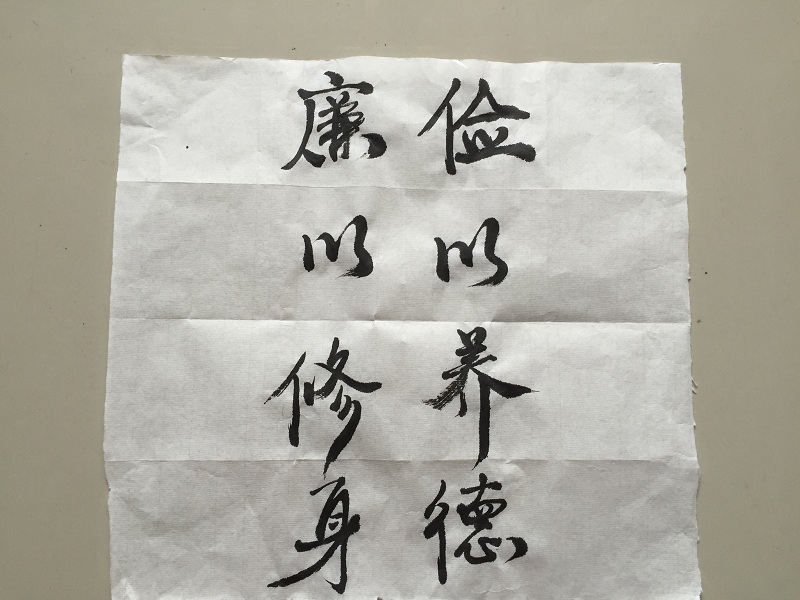 俭以养德
廉以修身